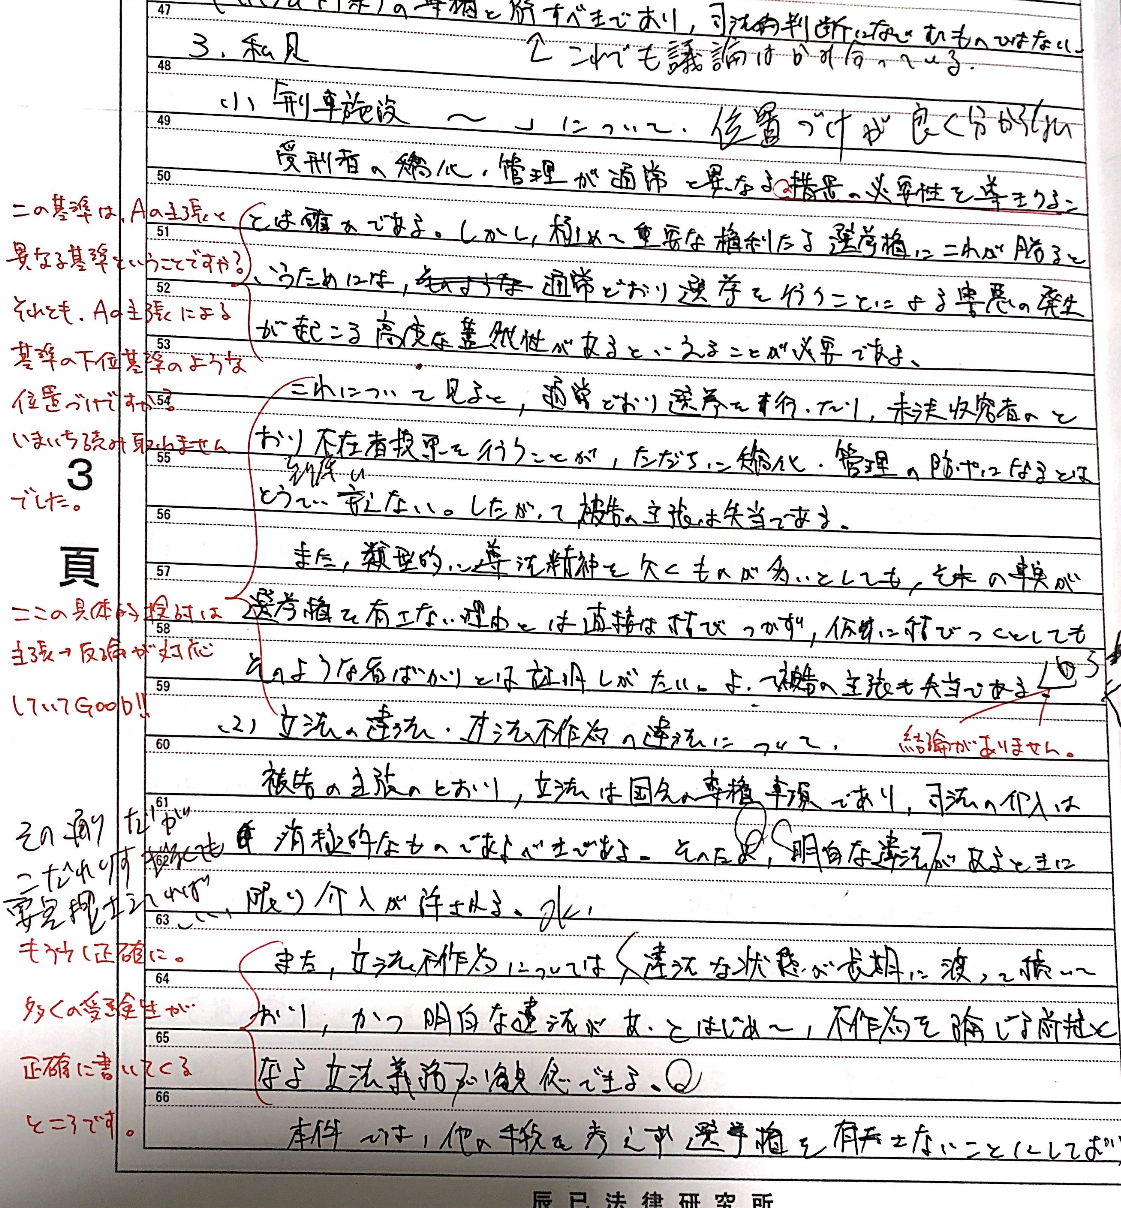 47
の専権と解すべきであり，司法的判断になじむものではない。
3．私見
↑これでも議論はかみ合っている．
48
(1)「刑事施設 〜 」について． 位置づけが良く分からない
49
受刑者の矯化・管理が通常と異なる措置の必要性を導きうるこ
50
とは確かである。しかし，極めて重要な権利たる選挙権にこれが勝ると
51
いうためには，そのような 通常どおり選挙を行うことによる害悪の発生
52
が起こる高度な蓋然性があるといえることが必要である．
53
これについて見ると，通常どおり選挙を行ったり，未決収容者のと
54
おり不在者投票を行うことが，ただちに矯化・管理の防止になるとは
55
とうてい言えない。したがって被告の主張は失当である。
56
また，類型的に遵法精神を欠くものが多いとしても，その事実が
57
選挙権を有さない理由とは直接は結びつかず，仮に結びつくとしても
58
そのような者ばかりとは証明しがたい。よって被告の主張も失当である．
59
(2) 立法の違法・立法不作為の違法について．
60
被告の主張のとおり，立法は国会の専権事項であり，司法の介入は
61
消極的なものであるべきである。そのため，明白な違法があるときに
62
限り介入が許される。
63
また，立法不作為については，違法な状態が長期に渡って続いて
64
おり，かつ明白な違法があってはじめて，不作為を論じる前提と
65
なる立法義務が観念できる。
66
本件では，他の手段を考えず選挙権を有さないことにしてお
この基準は、Aの主張と
異なる基準ということですか？
それとも、Aの主張による
基準の下位基準のような
位置づけですか？
いまいち読み取れません
でした。
3
頁
ここの具体的検討は
主張→反論が対応
していてGOOD!!
結論がありません。
その通りだが
こだわりすぎなくても
もう少し正確に。
多くの受験生が
正確に書いてくる
ところです。
辰已法律研究所